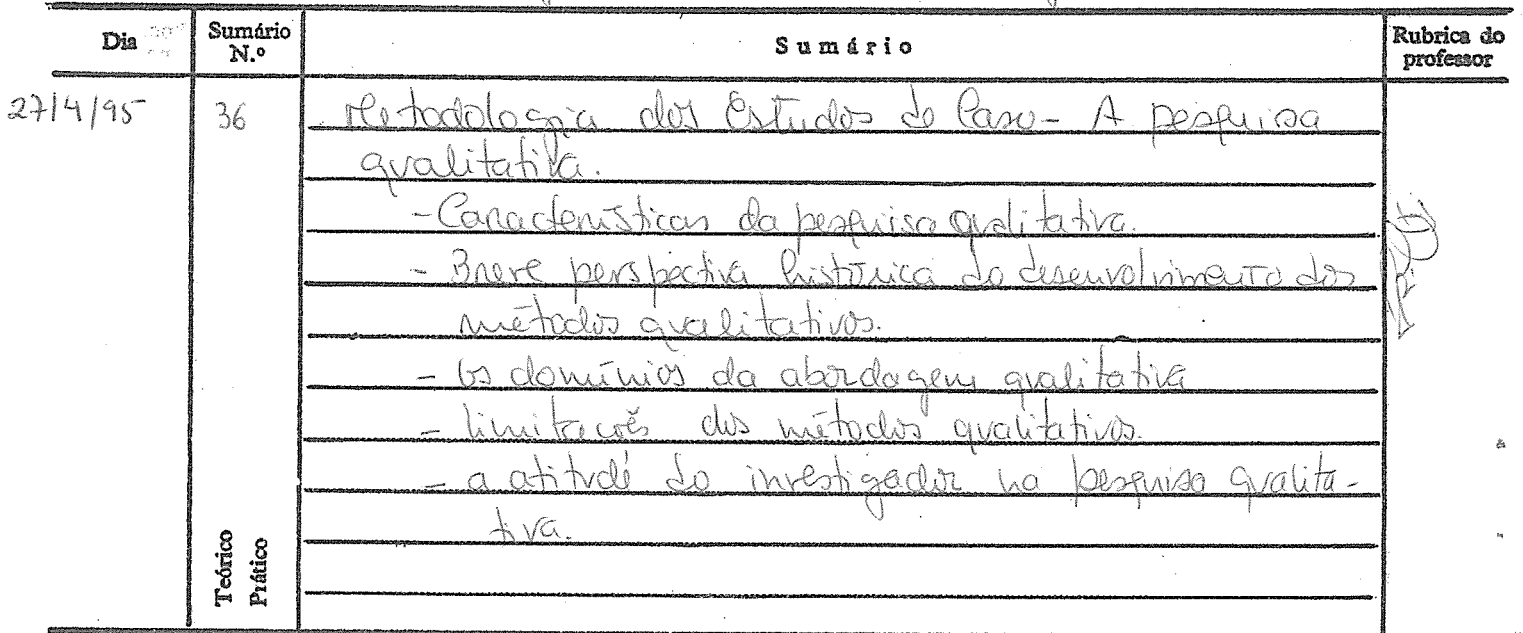 Dia Sumário N.º Sumário Rubrica do professor
27/4/95 36 Metodologia dos Estudos de Caso - A pesquisa
qualitativa.
- Características da pesquisa qualitativa.
- Breve perspectiva histórica do desenvolvimento dos
métodos qualitativos.
- Os domínios da abordagem qualitativa
- limitações dos métodos qualitativos.
- a atitude do investigador na pesquisa qualita-
tiva.
Teórico
Prático